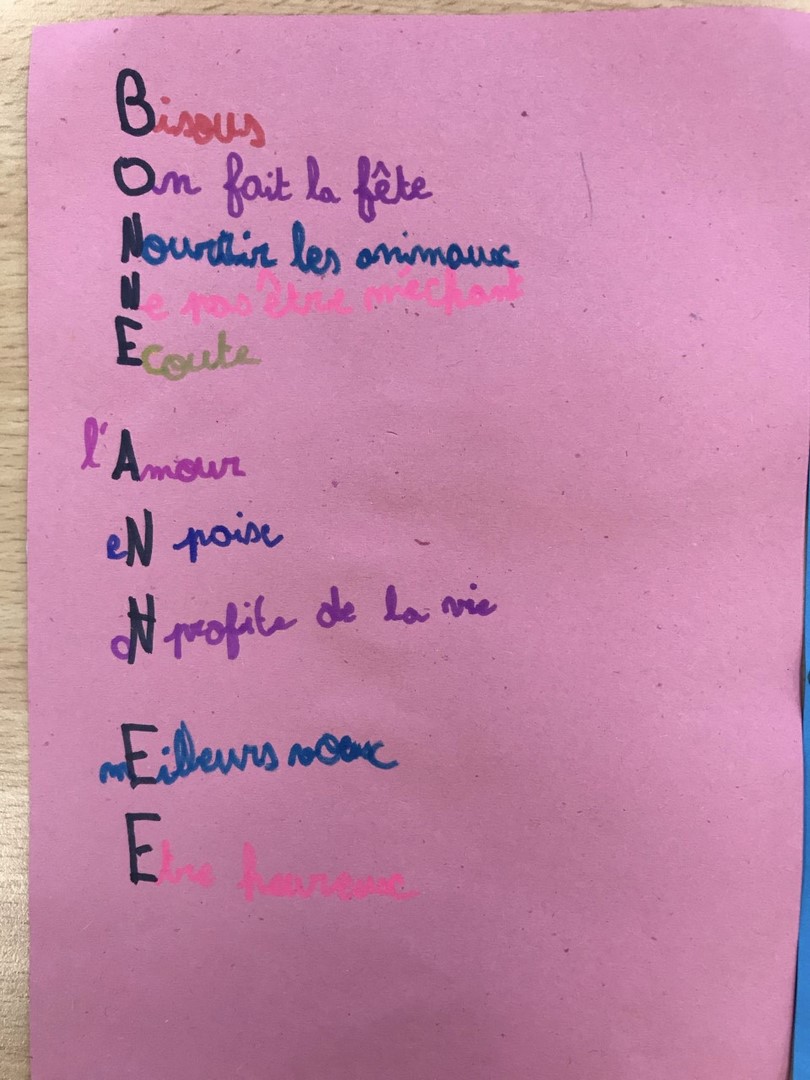 Bisous
On fait la fête
Nourrir les animaux
Ne pas être méchant
Ecoute
l'Amour
eN poisc
oN profite de la vie
mEilleurs voeux
Etre heureux